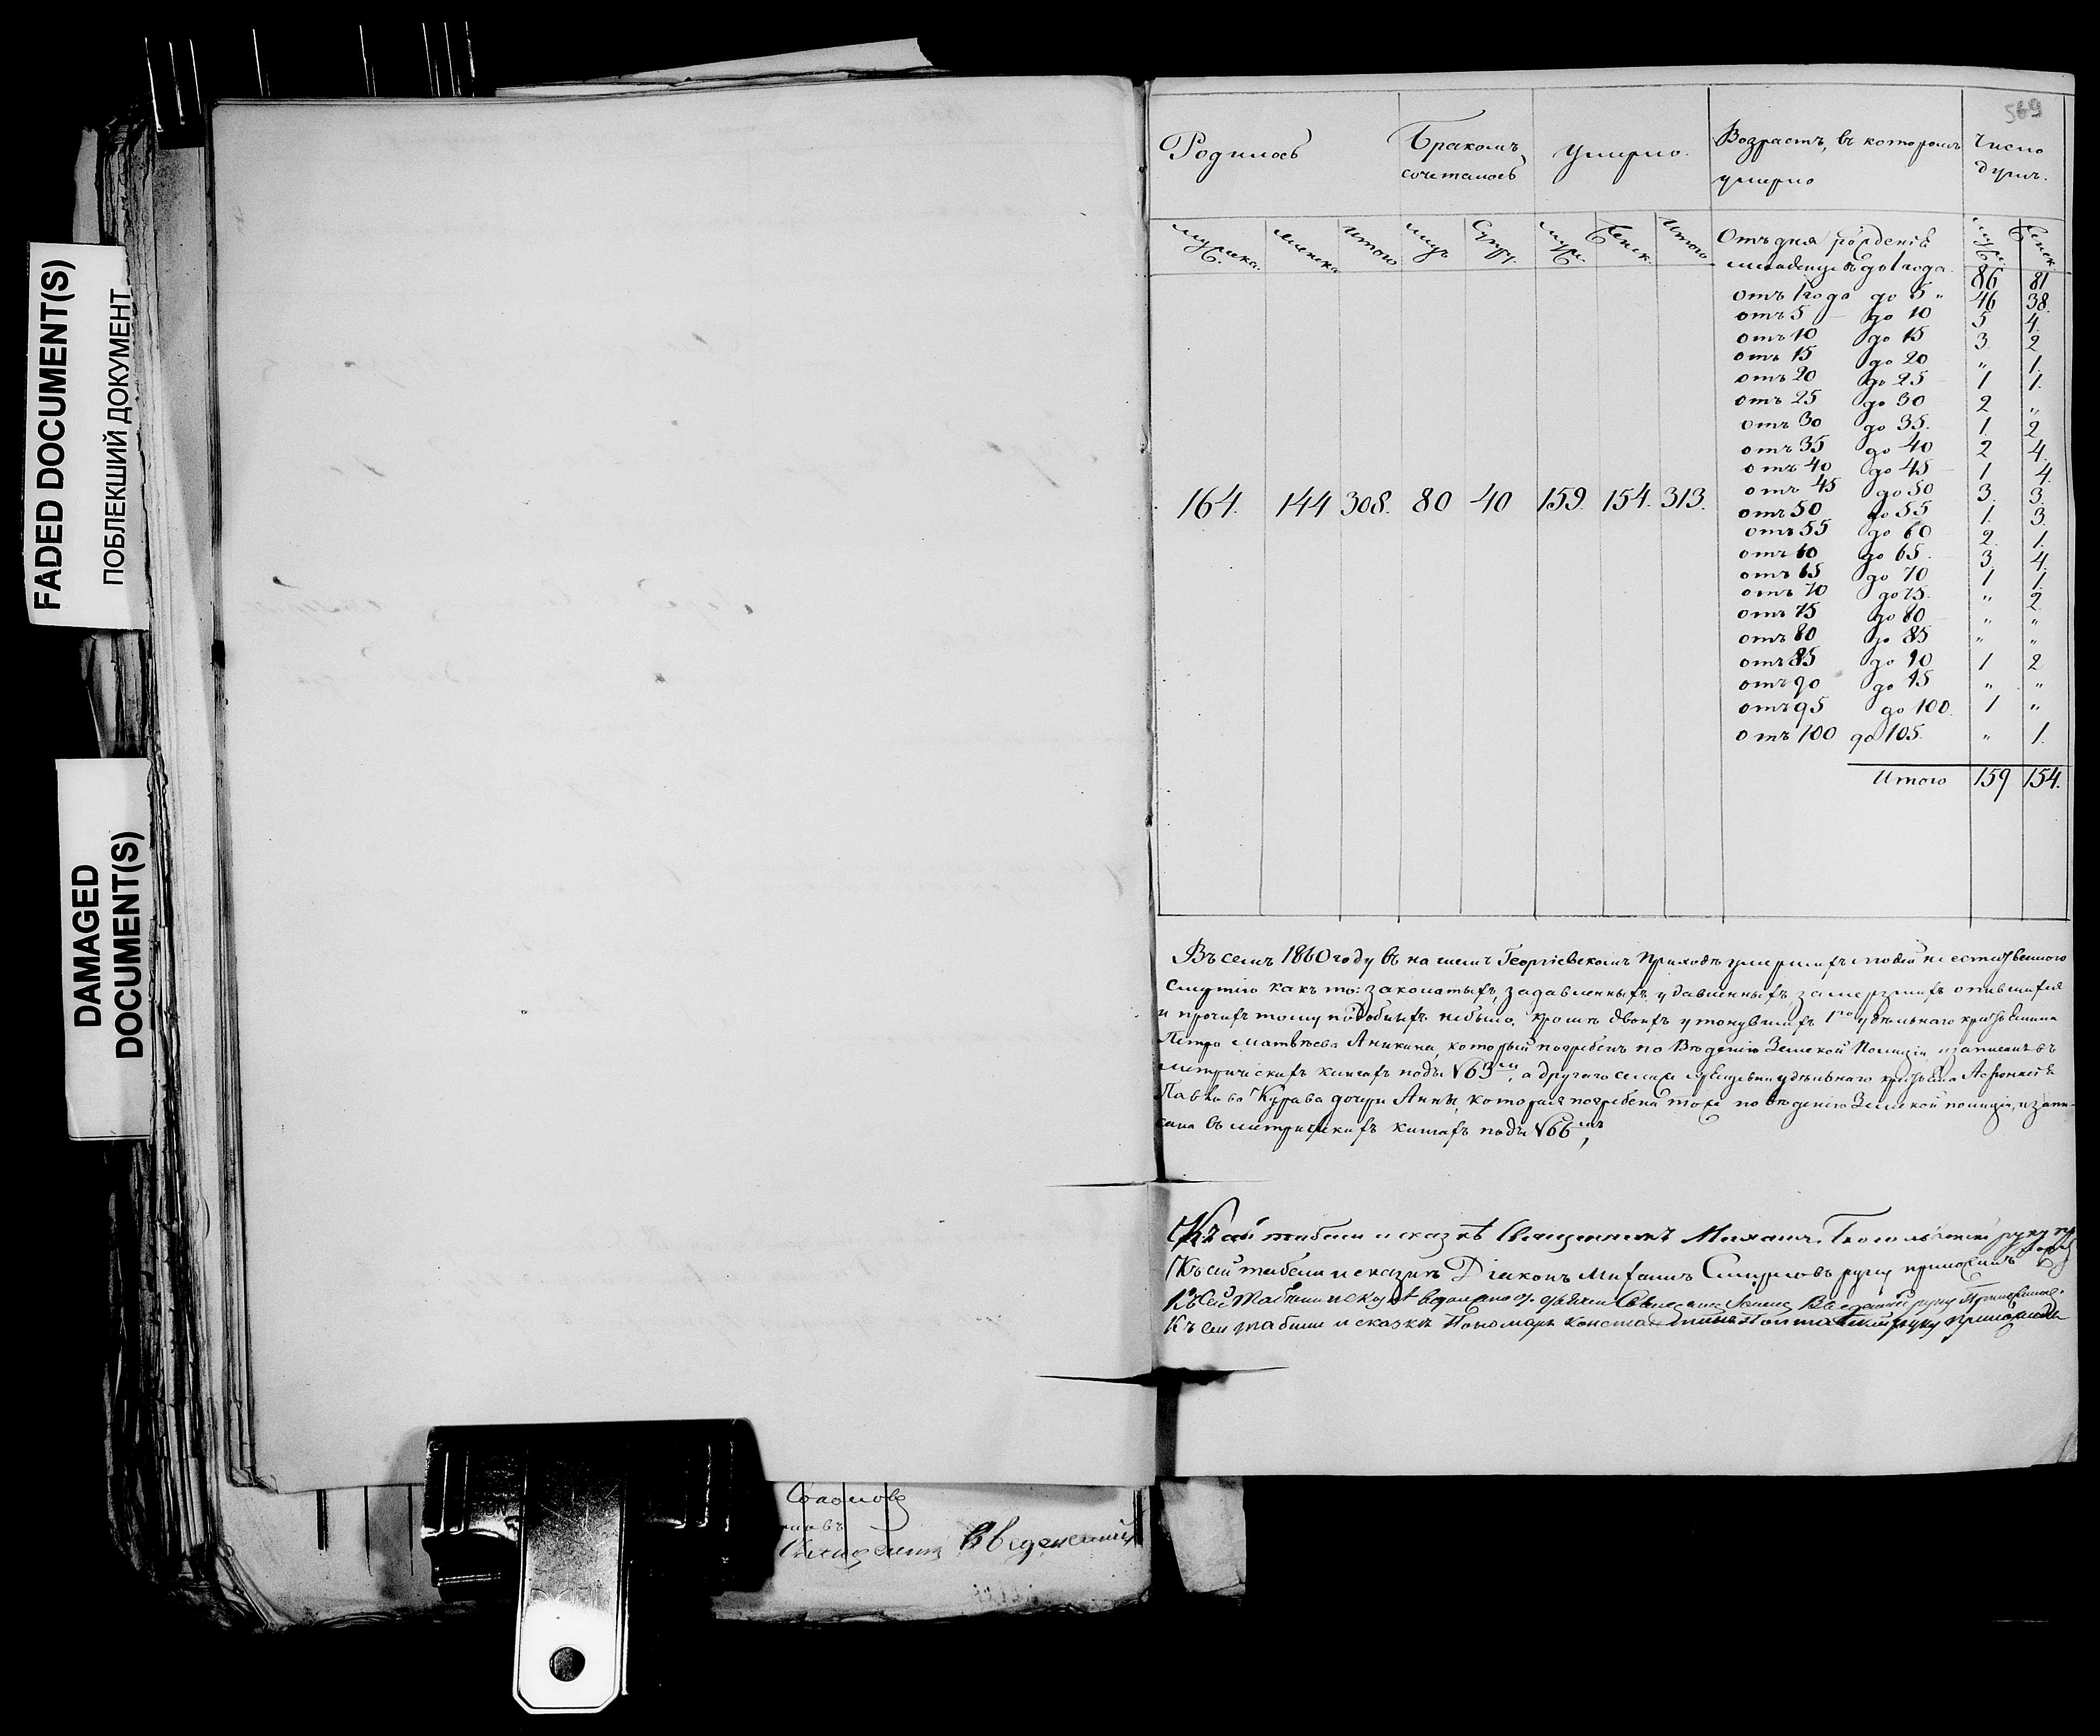 FADED DOCUMENT(S)
ПОБЛЕКШИЙ ДОКУМЕНТ
DAMAGED
DOCUMENT(S)
569
Родилось Бракомъ Умерло. Возрастъ, въ которомъ Число
сочеталось умерло душъ.
мужска. женска итого мужъ Супр. муж. женск. Итого Отъ дня рожденія муж. женск.
младенцевъ до 1 года 86 81
отъ 1 года до 5 " 46 38.
отъ 5 до 10 5 4.
отъ 10 до 15 3. 2
отъ 15 до 20 " 1.
отъ 20 до 25 1 1.
отъ 25 до 30 2 "
отъ 30 до 35. 1. 2
отъ 35 до 40 2 4.
отъ 40 до 45 1 4.
отъ 45 до 50 3. 3.
164. 144 308. 80 40 159. 154. 313.
отъ 50 до 55 1. 3.
отъ 55 до 60 2. 1.
отъ 60 до 65. 3. 4.
отъ 65 до 70 1 1.
отъ 70 до 75. " 2
отъ 75 до 80 " "
отъ 80 до 85 " "
отъ 85 до 90 1 2
отъ 90 до 95 " "
отъ 95 до 100. 1 "
отъ 100 до 105. " 1.
Итого 159 154.
Въ семъ 1860 году въ нашемъ Георгіевскомъ Приходѣ умершихъ людей неестественного
смертію какъ то: заколатыхъ, задавленныхъ, удавленныхъ, замерзшихъ опившихся
и прочихъ тому подобныхъ небыло. кромѣ двоихъ утонувшихъ 1го удѣльнаго крестьянина
Петра Матвѣева Аникина, который погребенъ по Вѣденію Земской Полиціи, и записанъ въ
метрическихъ книгахъ подъ №63мъ, а другаго удѣльнаго
Павлова дочери Анны, которая погребена тоже по вѣденію Земской полиціи, и запи-
сана въ метрическихъ книгахъ подъ №66мъ,
Къ сей табели и сказкѣ Священникъ Михаилъ руку
Къ сей табели и сказкѣ Діаконъ Михаилъ Смирновъ руку приложилъ
Къ сей Табели и сказкѣ Введенскій руку Приложилъ.
Къ сей табели и сказкѣ Пономарь руку приложилъ
Введенскій